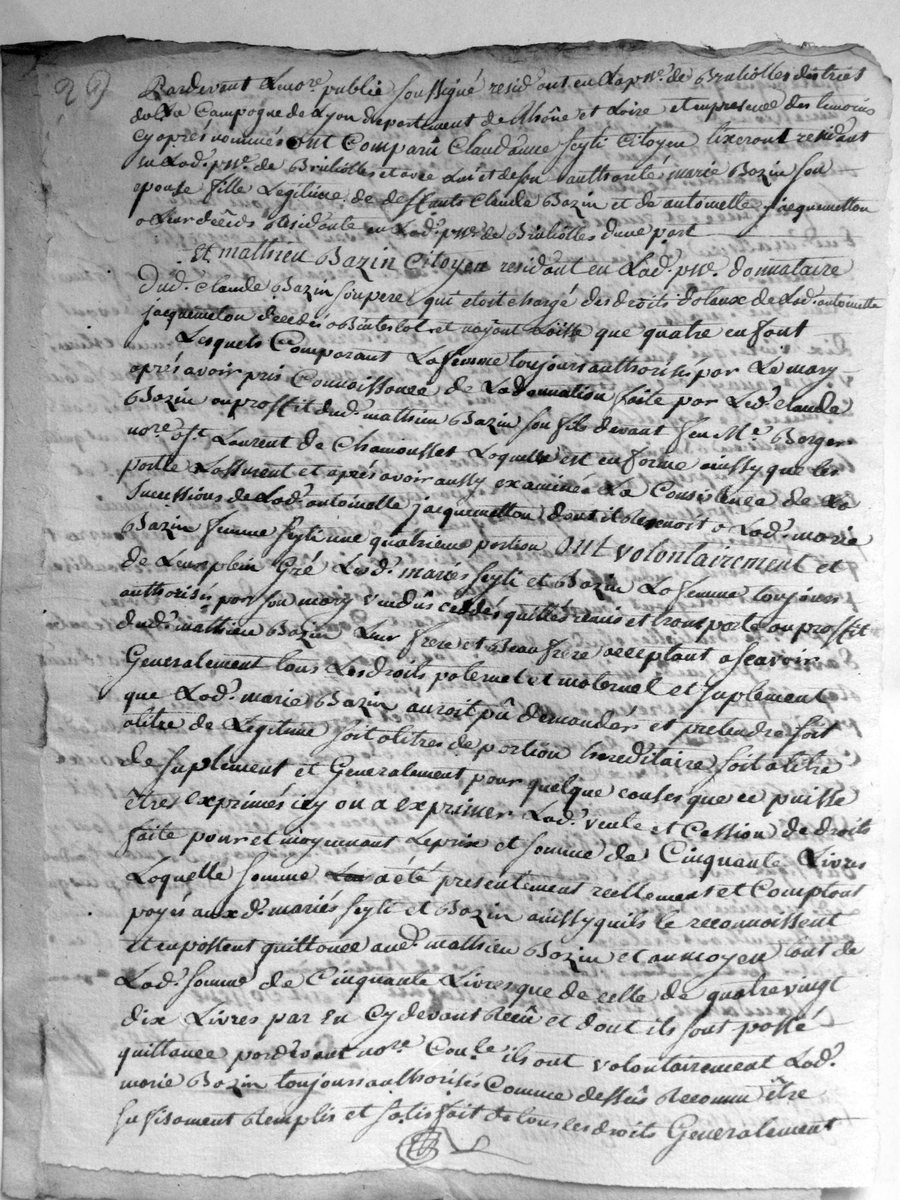 29
Pardevant Le no.re public soussigné residant en La p.sse de Brulliolles district
de La Campagne de Lyon departement de Rhône et Loire et en presence des temoins
cy apres nommés ont Comparû Claud anne Seyti Citoyen tixerant residant
en Lad.e p.sse de Brulliolles et avec Lui et de son authorité marie Bazin son
epouse fille Legitime de deffants Claude Bazin et de antoinette jacquemetton
a Leur décéds Residante en Lad.e p.sse de Brulliolles d'une part
Et mathieu Bazin Citoyen residant en Lad.e p.sse donnataire
Dud. Claude Bazin son pere qui etoit chargé des droits dotaux de Lad.e antoinette
jacquemetton décédés abintestat et nayant Laissé que quatre enfant
Lesquels Comparant La femme toujours authorisés par Le mary
aprés avoir pris Connoissance de La donnation faite par Led. Claude
Bazin au proffit dud. mathieu Bazin son fils devant feu M.e Berger
no.re a S.t Laurent de Chamousset Laquelle est en forme ainssy que les
partie L'assurent et aprés avoir aussy examinée La Consistence de La
sucussions de Lad.e antoinette jacquemetton dont il Revenoit a Lad.e marie
Bazin femme Seyti une quatrieme portion ont volontairement et
de Leur plein Gré Lesd. mariés Seyti et Bazin La femme toujours
authorisés par son mary vendûs ceddés quittés remis et transporté au proffit
dud. mathieu Bazin Leur frere et Beau frère acceptant a scavoir
Generalement tous Les droits paternel et maternel et suplement
que Lad.e marie Bazin auroit pû demander et pretendre soit
a titre de Legitime soit a titres de portion hereditaire soit a titre
de suplement et Generalement pour quelque causes que ce puisse
être exprimés icy ou a exprimer Lad.e vente et Cession de droits
faite pour et moyennant Le prix et somme de Cinquante Livres
Laquelle somme a été presentement reellement et Comptant
payés auxd. mariés Seyti et Bazin ainssy quils le reconnoissent
et en passent quittance aud. mathieu Bazin et au moyen tant de
Lad.e somme de Cinquante Livres que de celle de quatre vingt
dix Livres par Eu Cy devant Reçû et dont ils font passé
quittance pardevant no.re ils ont volontairement Lad.e
marie Bazin toujours authorisés Comme dessûs Reconnu être
suffisament Remplis et satisfait de tous les droits Generalement